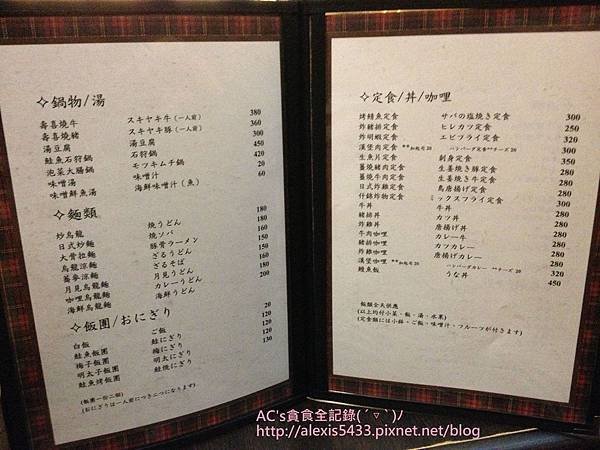 ◇鍋物/湯
壽喜燒牛 スキヤキ牛(一人前) 380
壽喜燒豬 スキヤキ豚(一人前) 360
湯豆腐 湯豆腐 300
鮭魚石狩鍋 石狩鍋 450
泡菜大腸鍋 モツキムチ鍋 420
味噌湯 味噌汁 20
味噌鮮魚湯 海鮮味噌汁(魚) 60
◇麵類
炒烏龍 焼うどん 180
日式炒麵 焼ソバ 180
大骨拉麵 豚骨ラーメン 160
烏龍涼麵 ざるうどん 150
蕎麥涼麵 ざるそば 150
月見烏龍麵 月見うどん 160
咖哩烏龍麵 カレーうどん 180
海鮮烏龍麵 海鮮うどん 200
◇飯團/おにぎり
白飯 ご飯 20
鮭魚飯團 鮭にぎり 120
梅子飯團 梅にぎり 120
明太子飯團 明太にぎり 120
鮭魚烤飯團 鮭焼にぎり 130
(飯團一份二個)
(おにぎりは一人前につき二つになります)
◇定食/丼/咖哩
烤鯖魚定食 サバの塩焼き定食 300
炸豬排定食 ヒレカツ定食 250
炸明蝦定食 エビフライ定食 320
漢堡肉定食 **加起司20 ハンバーグ定食**チーズ20 300
生魚片定食 刺身定食 350
薑燒豬肉定食 生姜焼き豚定食 280
薑燒牛肉定食 生姜焼き牛定食 280
日式炸雞定食 鳥唐揚げ定食 280
什錦炸物定食 ミックスフライ定食 350
牛丼 牛丼 280
豬排丼 カツ丼 280
炸雞丼 唐揚げ丼 280
牛肉咖哩 カレー牛 280
豬排咖哩 カツカレー 280
炸雞咖哩 唐揚げカレー 280
漢堡咖哩 **加起司20 ハンバーグカレー **チーズ20 320
鰻魚飯 うな丼 450
飯類全天供應
(以上均付小菜、飯、湯、水果)
(定食類には小鉢、ご飯、味噌汁、フルーツが付きます)
AC's貪食全記錄(´▽`)ﾉ
http://alexis5433.pixnet.net/blog